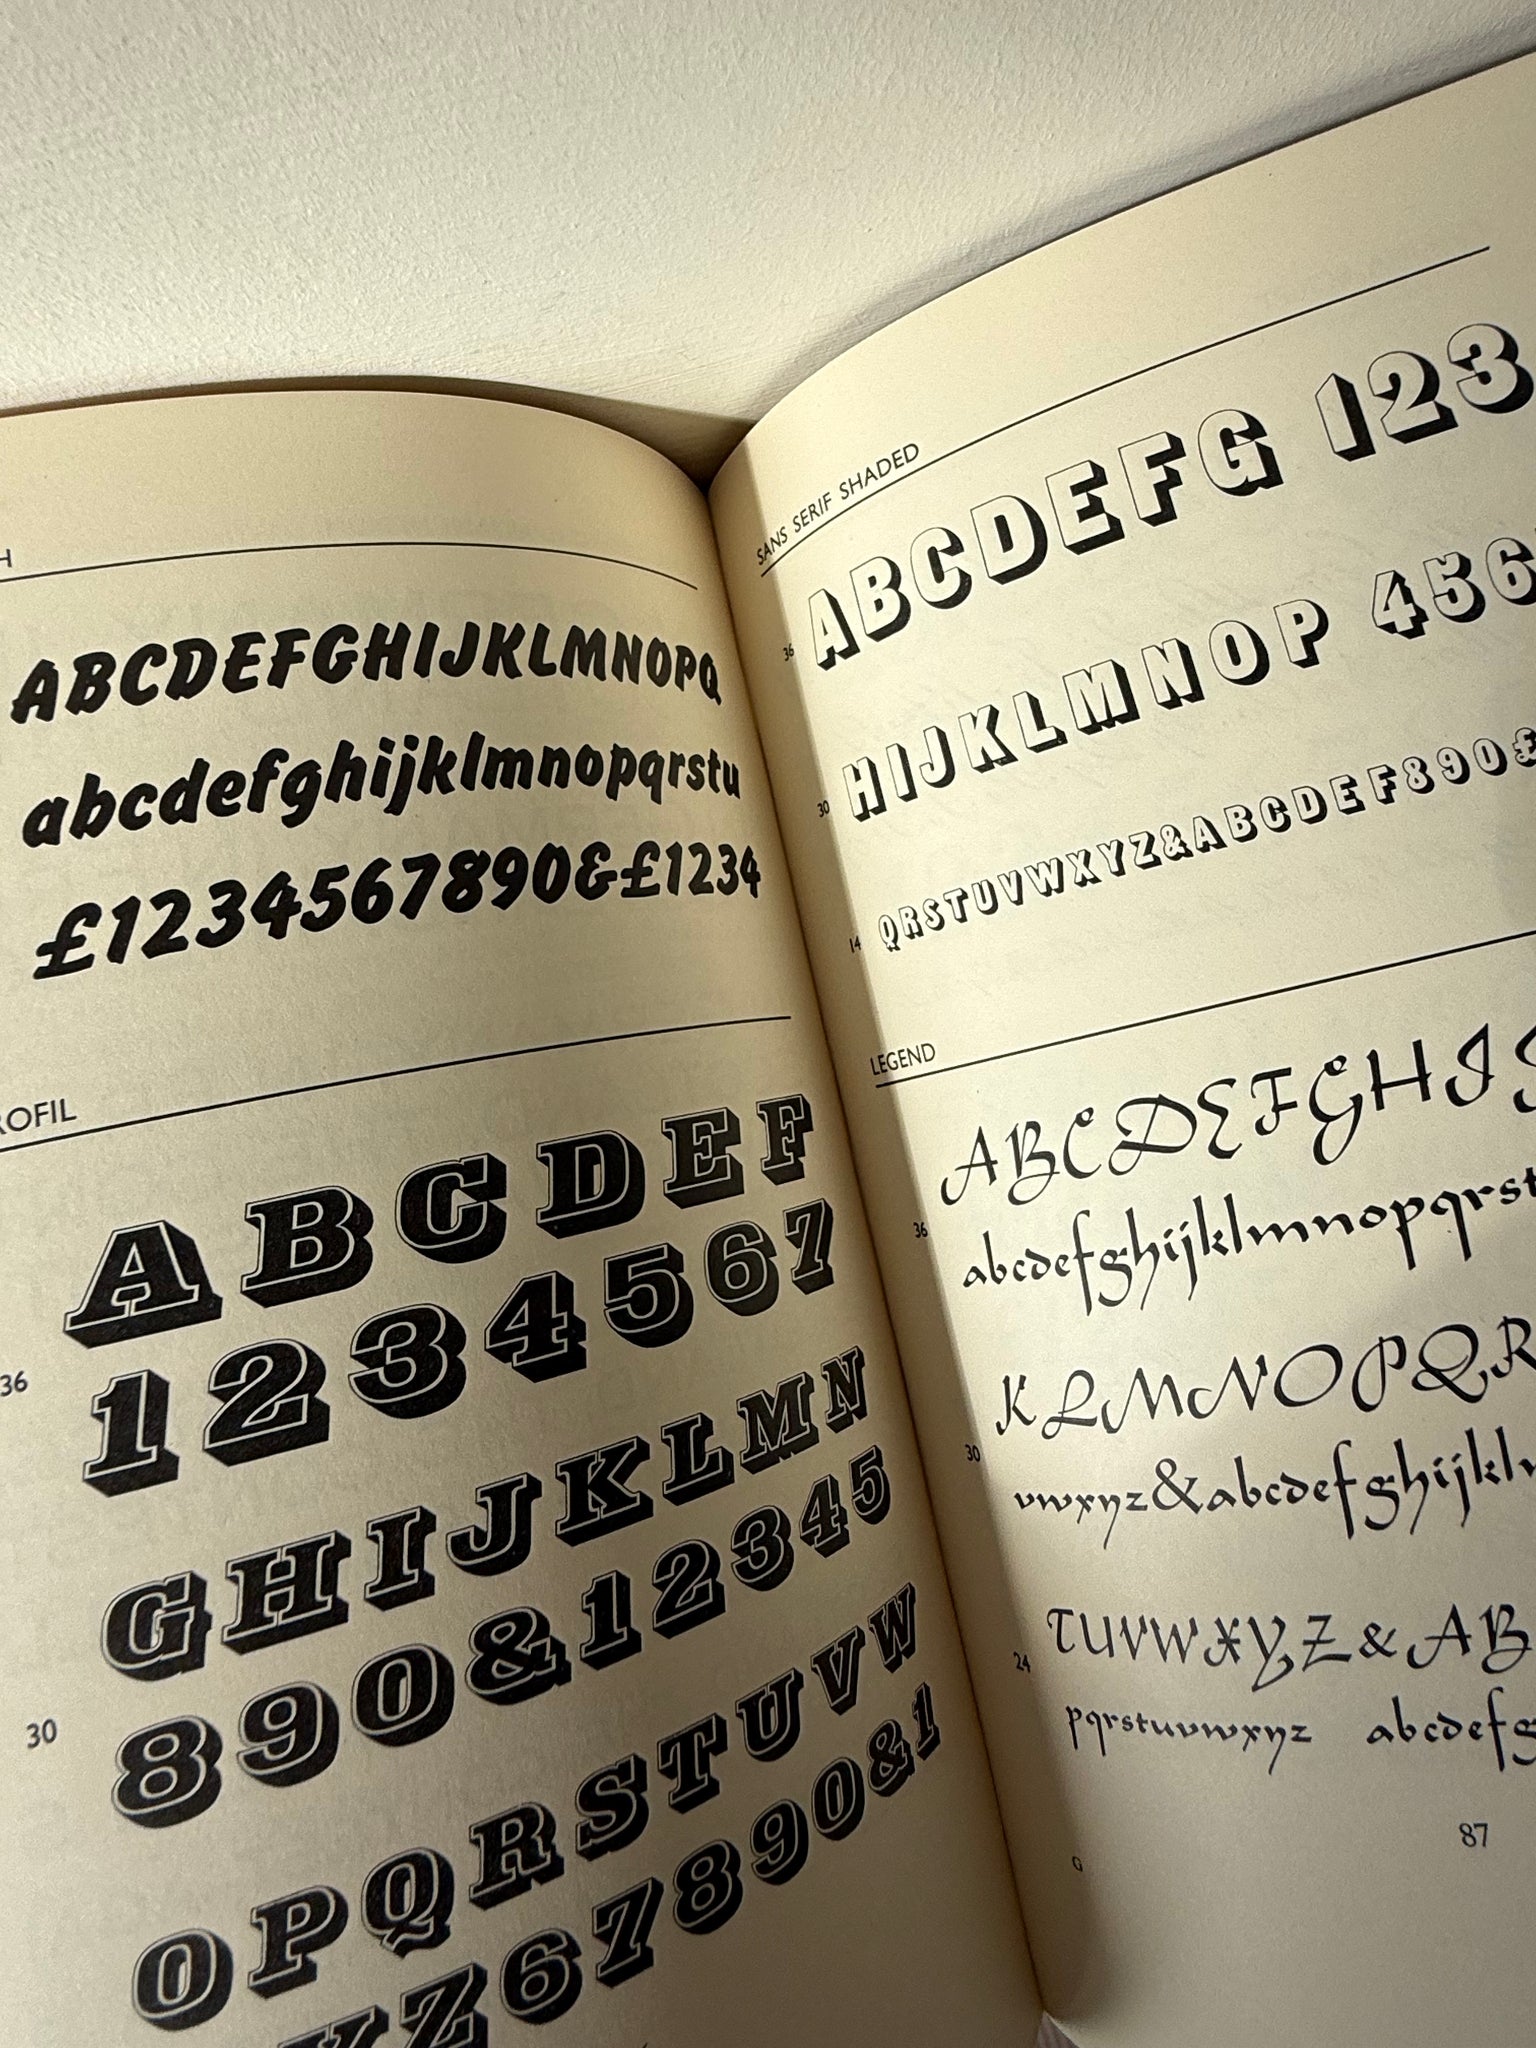 H
ABCDEFGHIJKLMNOPQ
abcdefghijklmnopqrstu
£1234567890&£1234
ROFIL
A B C D E F
36
1 2 3 4 5 6 7
G H I J K L M N
30
8 9 0 & 1 2 3 4 5
O P Q R S T U V W
Y Z 6 7 8 9 0 & 1
SANS SERIF SHADED
36 ABCDEFG 123
30 HIJKLMNOP 456
14 QRSTUVWXYZ&ABCDEF890£
LEGEND
ABCDEFGHIJ
36
abcdefghijklmnopqrst
KLMNOPQR
30
vwxyz&abcdefghijkl
TUVWXYZ&AB
24
pqrstuvwxyz abcdefg
87
G